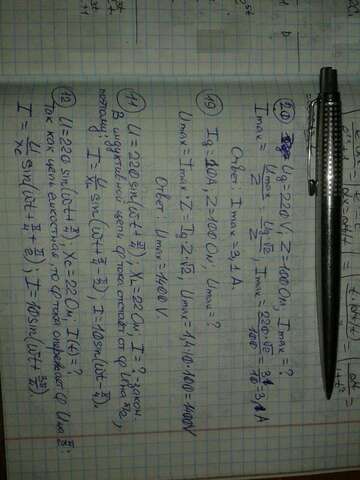 20 Ug = 220 V, Z = 100 Ом, Imax = ?
Imax = Umax/Z = Ug√2/Z, Imax = 220√2/100 = 31/10 = 3,1 A
Ответ: Imax = 3,1 A.
19 Ig = 10A, Z = 100 Ом, Umax = ?
Umax = Imax · Z = Ig Z · √2, Umax = 1,4 · 10 · 100 = 1400V
Ответ: Umax = 1400 V
11 U = 220 sin(ωt + π/4), XL = 22 Ом, I = ? - закон.
В индуктивной цепи φ тока отстаёт от φ U на π/2,
поэтому: I = U/XL sin(ωt + π/4 - π/2), I = 10 sin(ωt - π/4).
12 U = 220 sin(ωt + π/4), XC = 22 Ом, I(t) = ?
Так как цепь емкостная то φ тока опережает φ U на π/2:
I = U/XC sin(ωt + π/4 + π/2); I = 10 sin(ωt + 3π/4)